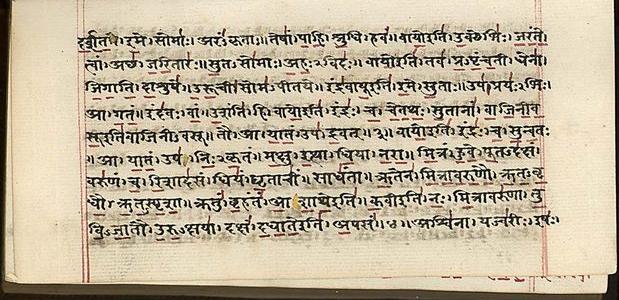 दर्शत। इमे। सोमाः। अरंऽकृताः॥ तेषां। पाहि। श्रुधि। हवं॥ वायोइति। उक्थेभिः। जरंते
त्वां। अच्छ। जरितारः॥ सुतऽसोमाः। अहःऽविदः॥ वायोइति। तव। प्रऽपृंचती। धेना।
जिगाति। दाशुषे॥ उरूची। सोमऽपीतये॥ इंद्रवायूइति। इमे। सुताः॥ उप। प्रयःऽभिः।
आ। गतं॥ इंदवः। वां। उशंति। हि॥ वायोइति। इंद्रः। च। चेतथः। सुतानां। वाजिनीव
सूइतिवाजिनीऽवसू॥ तौ। आ। यातं। उप। द्रवत्॥३॥ वायोइति। इंद्रः। च। सुन्वतः
॥ आ। यातं। उप। निःऽकृतं॥ मक्षु। इत्था। धिया। नरा॥ मित्रं। हुवे। पूतऽदक्षं।
वरुणं। च। रिशादसं॥ धियं। घृताचीं। साधंता॥ ऋतेन। मित्रावरुणौ। ऋतऽवृ
धौ। ऋतऽस्पृशा॥ क्रतुं। बृहंतं। आशाथेइति॥ कवीइति। नः। मित्रावरुणा। तु
विऽजातौ। उरुऽक्षया॥ दक्षं। दधातेइति। अपसं॥४॥ अश्विना। यज्वरीः। इषः।